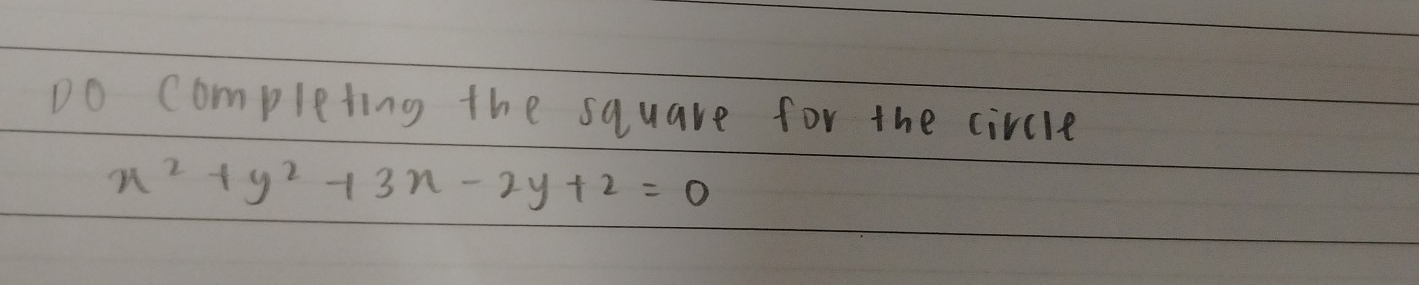 DO completing the square for the circle
x² + y² + 3x - 2y + 2 = 0